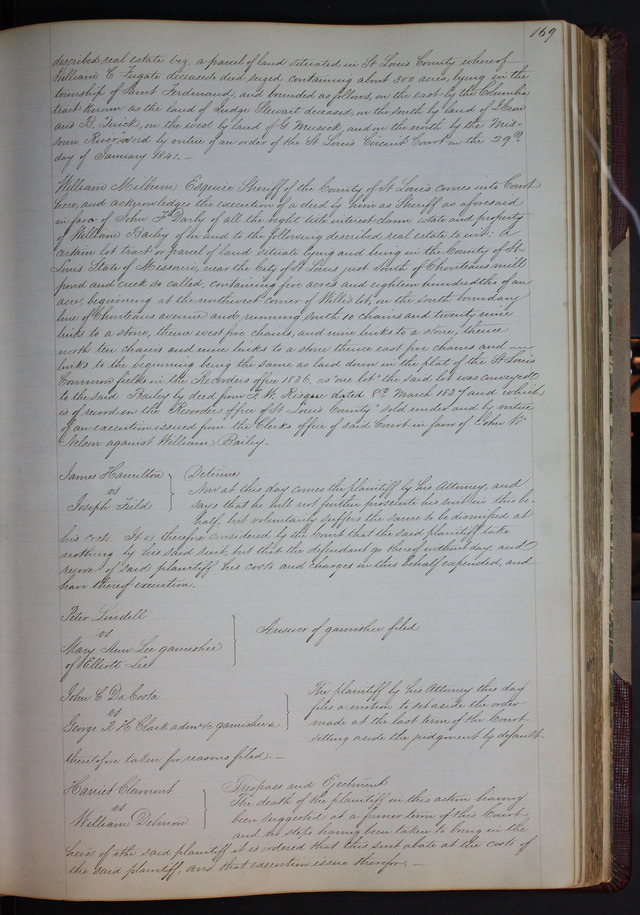 169
described real estate beg. a parcel of land situated in St Louis County whereof
William C. Fugate deceased died seized containing about 300 acres, lying in the
township of Saint Ferdinand, and bounded as follows, on the east by the Columbia
tract known as the land of Judge Stewart deceased, on the south by land of
and B. Quick, on the west by land of G Musick, and on the north by the Mis-
souri River, sold by virtue of an order of the St Louis Circuit Court on the 29th
day of January 1841. —
William Milburn Esquire Sheriff of the County of St Louis comes into Court
here, and acknowledges the execution of a deed by him as Sheriff as aforesaid
in favor of John F. Darby of all the right title interest claim estate and property
of William Bailey of in and to the following described real estate to wit: A
certain lot tract or parcel of land situate lying and being in the County of St.
Louis State of Missouri, near the City of St Louis just South of Chouteaus mill
pond and creek so called, containing five acres and eighteen hundredths of an
acre, beginning at the northwest corner of Willis's lot, on the south boundary
line of Chouteaus avenue and running south 10 chains and twenty nine
links to a stone, thence west five chains, and nine links to a stone, thence
north ten chains and nine links to a stone thence east five chains and
links to the beginning being the same as laid down in the plat of the St Louis
Common fields in the Recorders office 1836, as "one lot" the said lot was conveyed
to the said Bailey by deed from F. W. Risque dated 8th March 1837 and which
is of record in the Recorders office of St Louis County" sold under and by virtue
of an execution issued from the Clerks office of said Court in favor of John W
Nelson against William Bailey.
James Hamilton
vs
Joseph Field
Detinue
Now at this day comes the plaintiff by his Attorney, and
says that he will not further prosecute his suit in this be-
half, but voluntarily suffers the same to be dismissed at
his costs. It is therefore considered by the Court that the said plaintiff take
nothing by his said suit, but that the defendant go thereof without day, and
recover of said plaintiff his costs and charges in this behalf expended, and
have thereof execution.
Peter Lindell
vs
Mary Ann Lee garnishee
of Elliott Lee
Answer of garnishee filed
John C. DaCosta
vs
George R. H. Clark admr & garnishee
The plaintiff by his Attorney this day
files a motion to set aside the order
made at the last term of the Court
setting aside the judgment by default
theretofore taken for reasons filed. —
Harriet Clermont
vs
William Delmon
Trespass and Ejectment
The death of the plaintiff in this action having
been suggested at a former term of this Court,
and no steps having been taken to bring in the
heirs of the said plaintiff it is ordered that this suit abate at the costs of
the said plaintiff, and that execution issue therefor. —